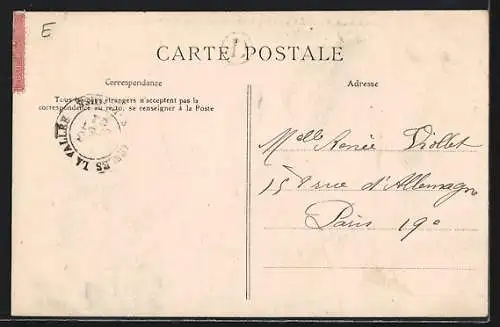 E
CARTE POSTALE
1
Correspondance
Adresse
Tous les pays étrangers n'acceptent pas la
correspondance au recto, se renseigner à la Poste
LA VALLÉE
Melle Renée Viollet
rue d'Allemagne
Paris 19e